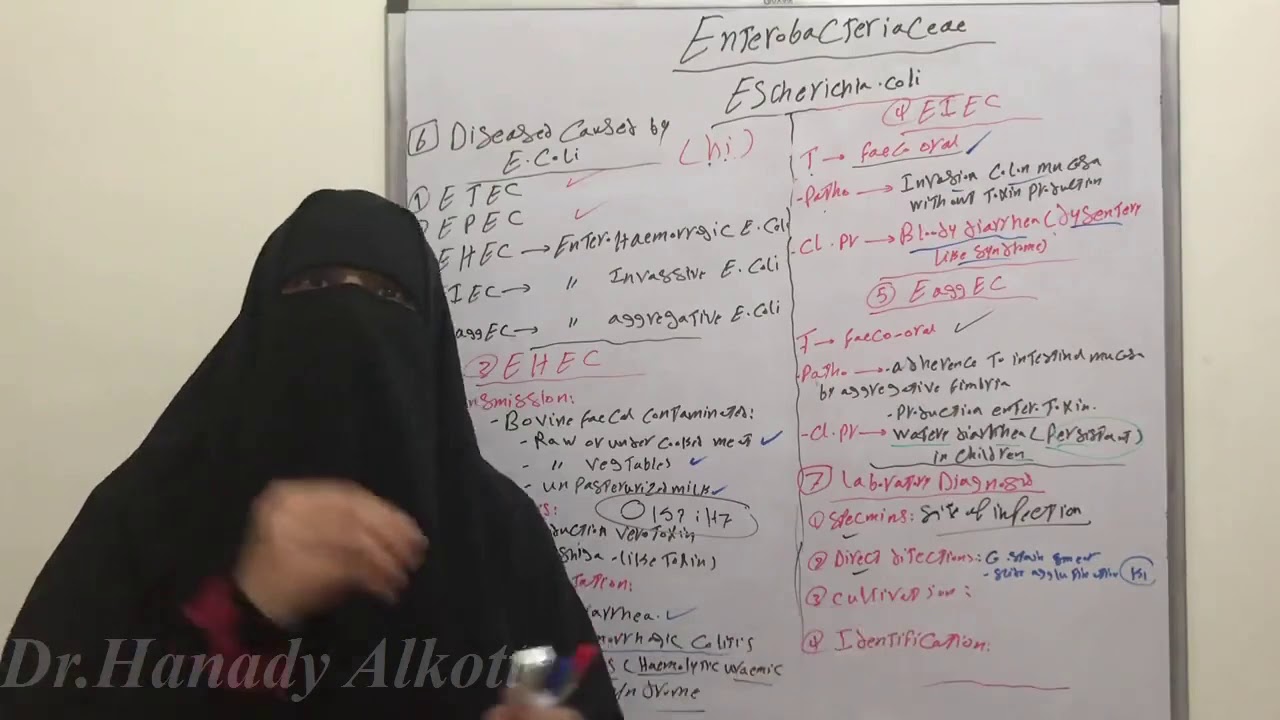 Enterobacteriaceae
Escherichia.coli
6 Diseased Caused by
E.Coli
(hi)
① ETEC
EPEC
EHEC → Entero.Haemorragic E.Coli
IEC → " Invassive E.Coli
aggEC → " aggregative E.Coli
③ EHEC
nsmission:
- Bovine faecal contaminated:
- Raw or under cooked meat
- " vegtables
- un pasteurized milk
s:
O157:H7
duction verotoxin
shiga-like toxin)
tation:
iarrhea.
morrhagic Colitis
S (Haemolytic uraemic
yndrome
④ EIEC
T → faeco oral
- Patho → Invasion Colon mucosa
without Toxin production
- Cl.Pr → Bloody diarrhea (dysentery
like syndrome)
⑤ EaggEC
T → faeco-oral
- Patho → adherence to intestinal mucosa
by aggregative fimbria
- production enterotoxin.
- Cl.Pr → watery diarrhea (Persistant)
in children
⑦ Laboratory Diagnosis
① Specmins: Site of infection
② Direct ditections: G.stain smear
- slide agglutination K1
③ Cultivation:
④ Identification:
Dr.Hanady Alkot